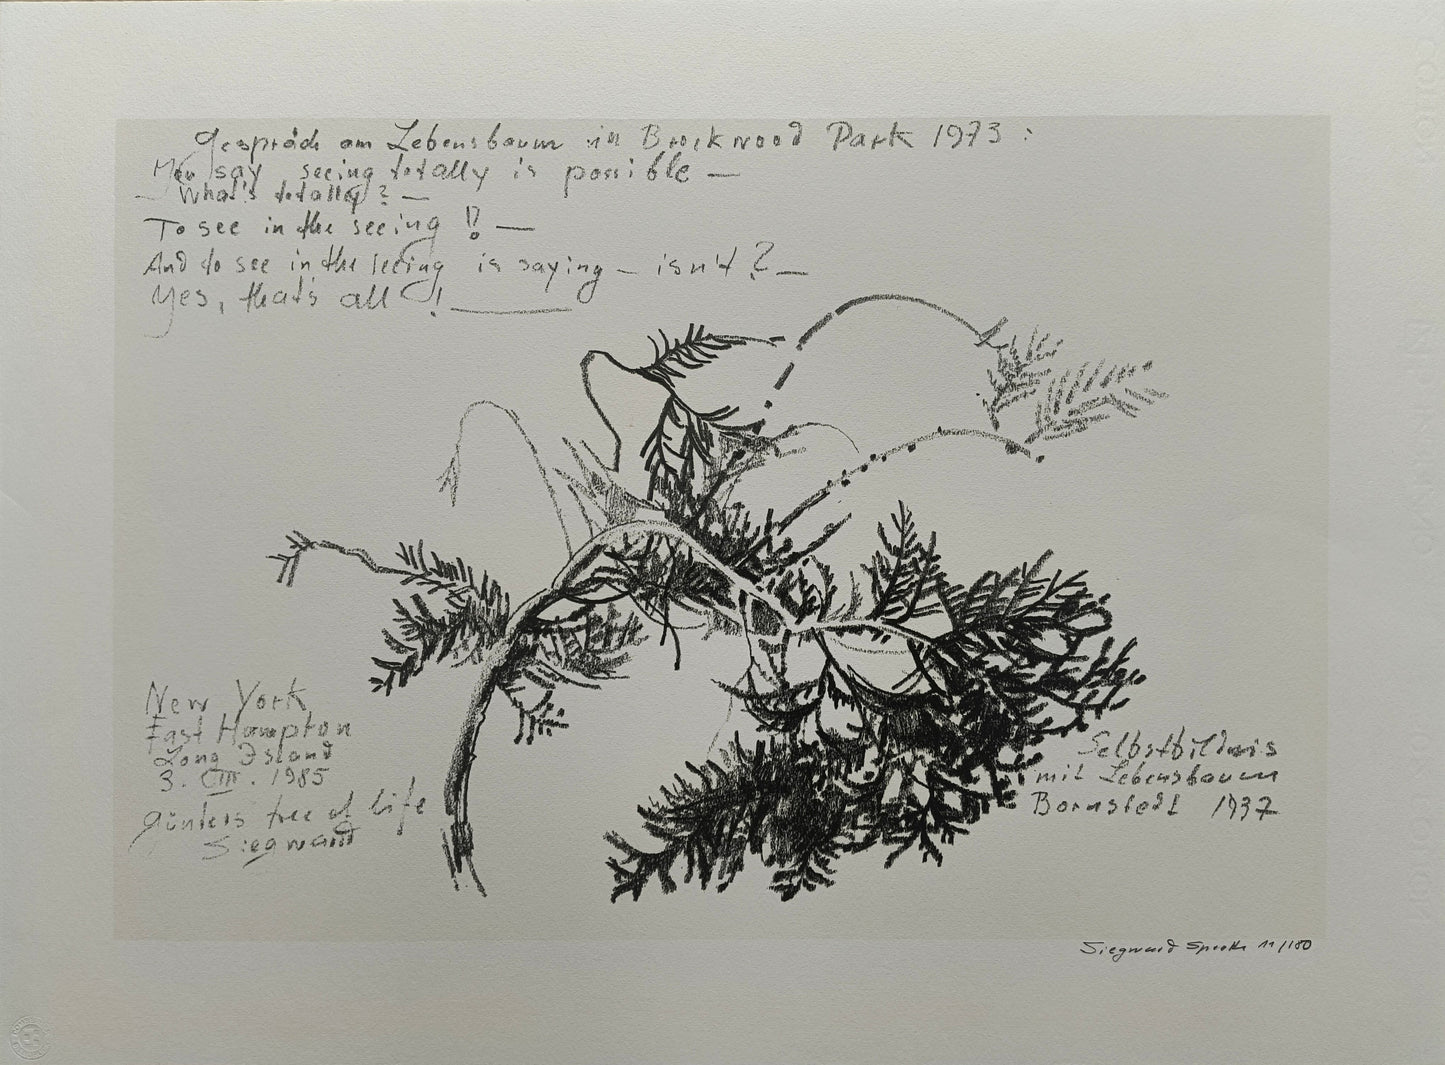 Gespräch am Lebensbaum in Brockwood Park 1973 :
You say seeing totally is possible —
— What's totally ? —
To see in the seeing !? —
And to see in the seeing is saying — isn't ? —
Yes, that's all ! —
New York
East Hampton
Long Island
3. VIII. 1985
günters tree of life
Siegward
Selbstbildnis
mit Lebensbaum
Bornstedt 1937
Siegward Sprotte 11/180